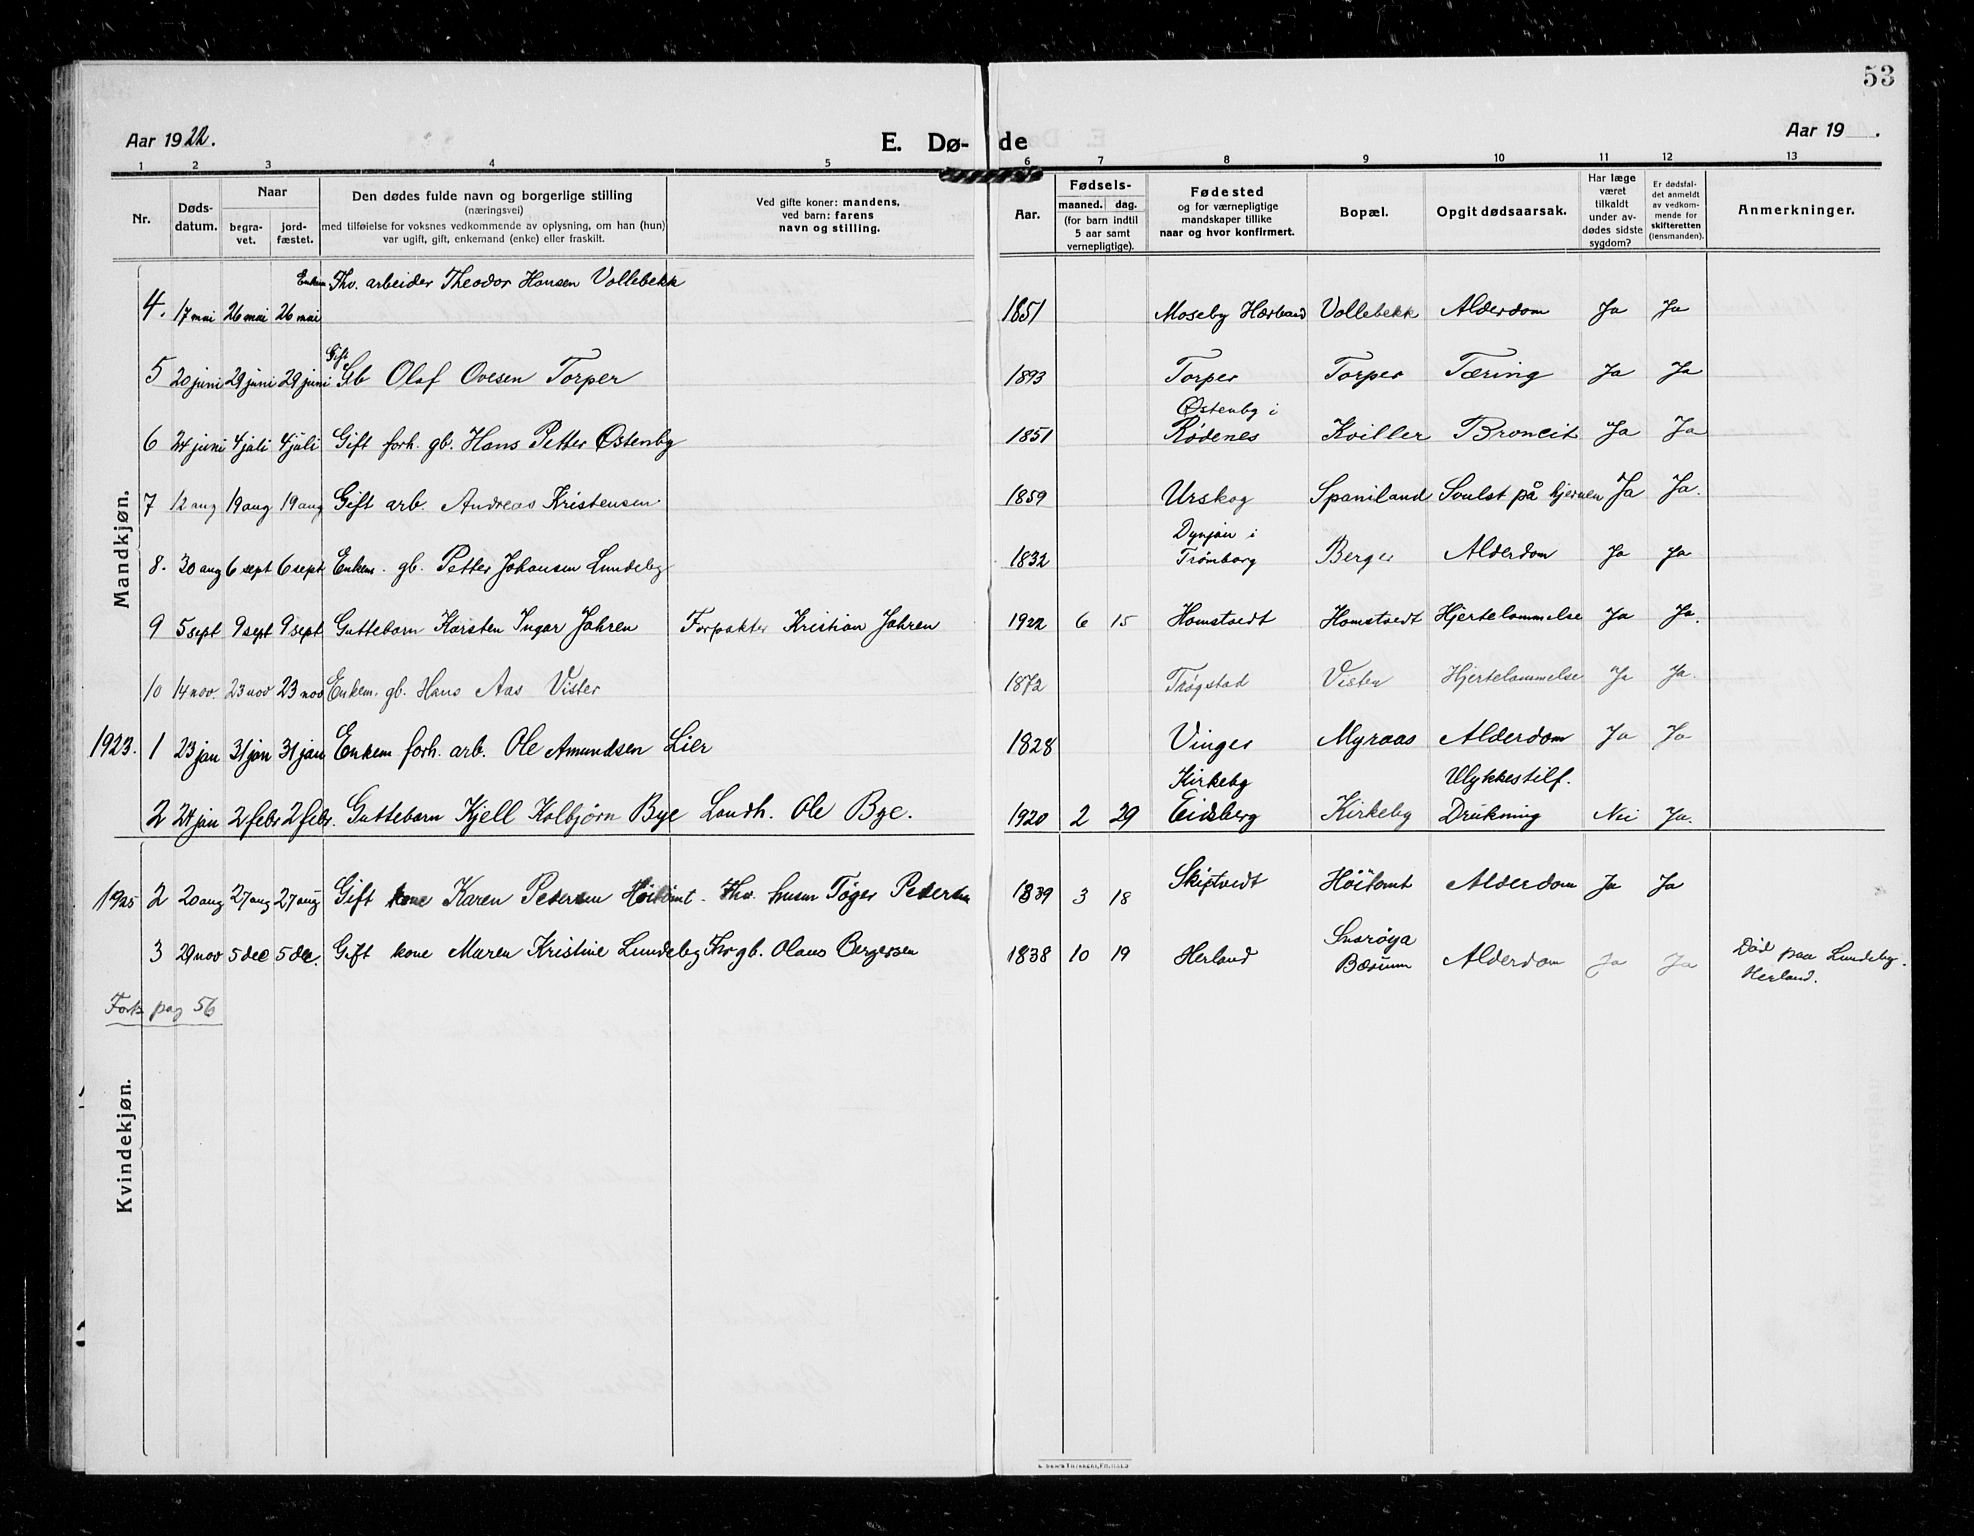 53
Aar 1922.
E. Dø-
de
Aar 19 .
1 2 3 4 5 6 7 8 9 10 11 12 13
Nr.
Døds-
datum.
Naar
begra-
vet.
jord-
fæstet.
Den dødes fulde navn og borgerlige stilling
(næringsvei)
med tilføielse for voksnes vedkommende av oplysning, om han (hun)
var ugift, gift, enkemand (enke) eller fraskilt.
Ved gifte koner: mandens,
ved barn: farens
navn og stilling.
Aar.
Fødsels-
maaned. dag.
(for barn indtil
5 aar samt
vernepligtige).
Fødested
og for værnepligtige
mandskaper tillike
naar og hvor konfirmert.
Bopæl.
Opgit dødsaarsak.
Har læge
været
tilkaldt
under av-
dødes sidste
sygdom?
Er dødsfal-
det anmeldt
av vedkom-
mende for
skifteretten
(lensmanden).
Anmerkninger.
Mandkjøn.
Enkem Fhv. arbeider Theodor Hansen Vollebekk
4. 17 mai 26 mai 26 mai 1851 Moseby Hærland Vollebekk Alderdom Ja Ja
Gift
5 20 juni 29 juni 29 juni Gb Olaf Ovesen Torper 1893 Torper Torper Tæring Ja Ja
Østenby i
6 24 juni 4 juli 4 juli Gift forh. gb. Hans Petter Østenby 1851 Rødenes Kviller Broncit Ja Ja
7 12 aug 19 aug 19 aug Gift arb. Andreas Kristensen 1859 Urskog Spaniland Svulst på hjernen Ja Ja.
Dynjan i
8. 30 aug 6 sept 6 sept Enkem. gb. Petter Johansen Lundeby 1832 Trømborg Berger Alderdom Ja Ja
9 5 sept 9 sept 9 sept Guttebarn Karsten Ingar Jahren Forpakter Kristian Jahren 1922 6 15 Homstvedt Homstvedt Hjertelammelse Ja Ja.
10 14 nov. 23 nov 23 nov Enkem. gb. Hans Aas Vister 1872 Trøgstad Vister Hjertelammelse Ja Ja.
1923. 1 23 jan 31 jan 31 jan Enkem forh. arb. Ole Amundsen Lier 1828 Vinger Myraas Alderdom Ja Ja
Kirkeby Ulykkestilf.
2 24 jan 2 febr 2 febr. Guttebarn Kjell Kolbjørn Bye Landh. Ole Bye. 1920 2 29 Eidsberg Kirkeby Drukning Nei Ja.
1925 2 20 aug 27 aug 27 aug Gift kone Karen Petersen Höitomt. Fhv. husm Töger Pedersen 1839 3 18 Skiptvedt Höitomt Alderdom Ja Ja
Snarøya
3 29 nov 5 dec 5 dec. Gift kone Maren Kristine Lundeby Fhv gb. Olaus Bergersen 1838 10 19 Herland Bærum Alderdom Ja Ja Död paa Lundeby.
Herland.
Forts pag 56
Kvindekjøn.